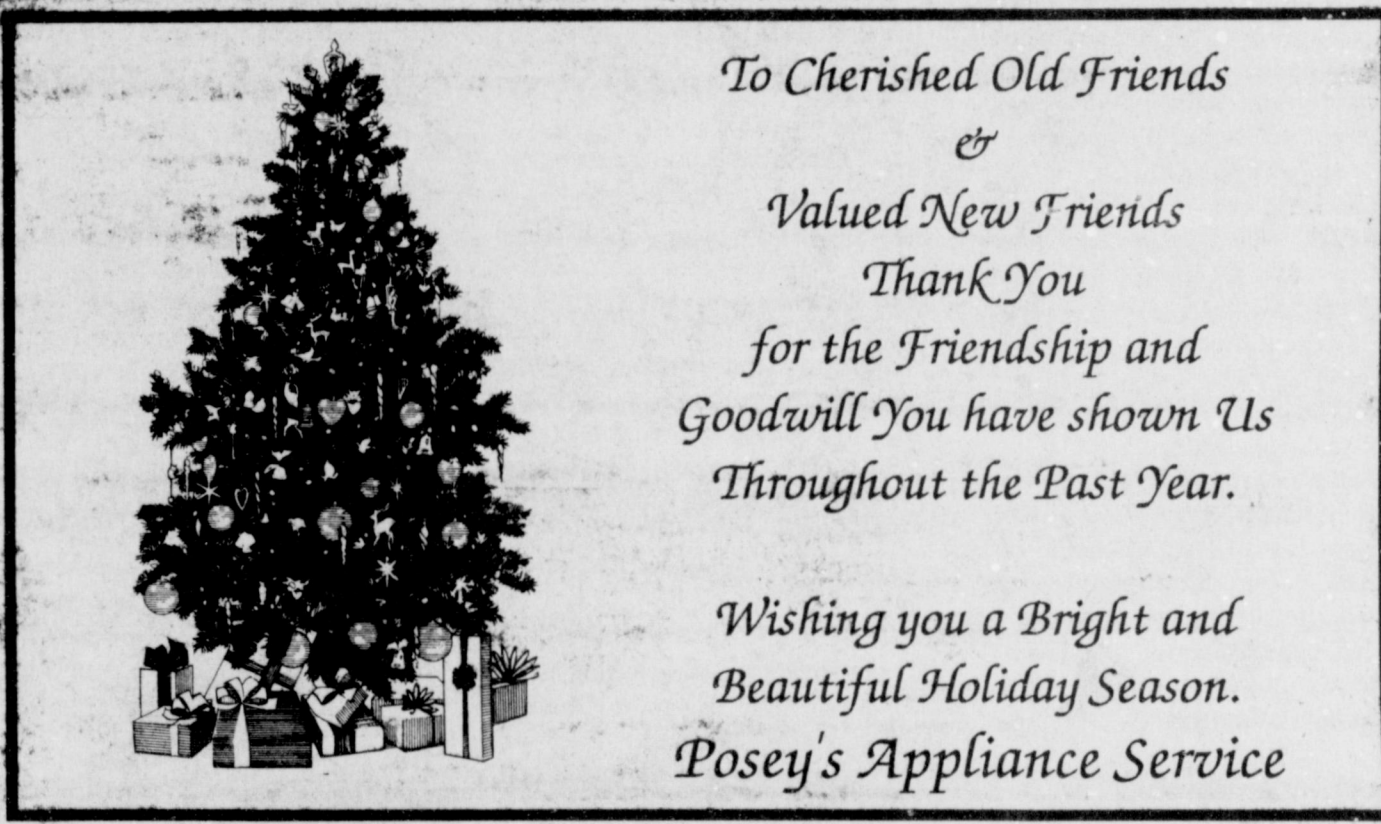 To Cherished Old Friends
&
Valued New Friends
Thank You
for the Friendship and
Goodwill You have shown Us
Throughout the Past Year.
Wishing you a Bright and
Beautiful Holiday Season.
Posey's Appliance Service